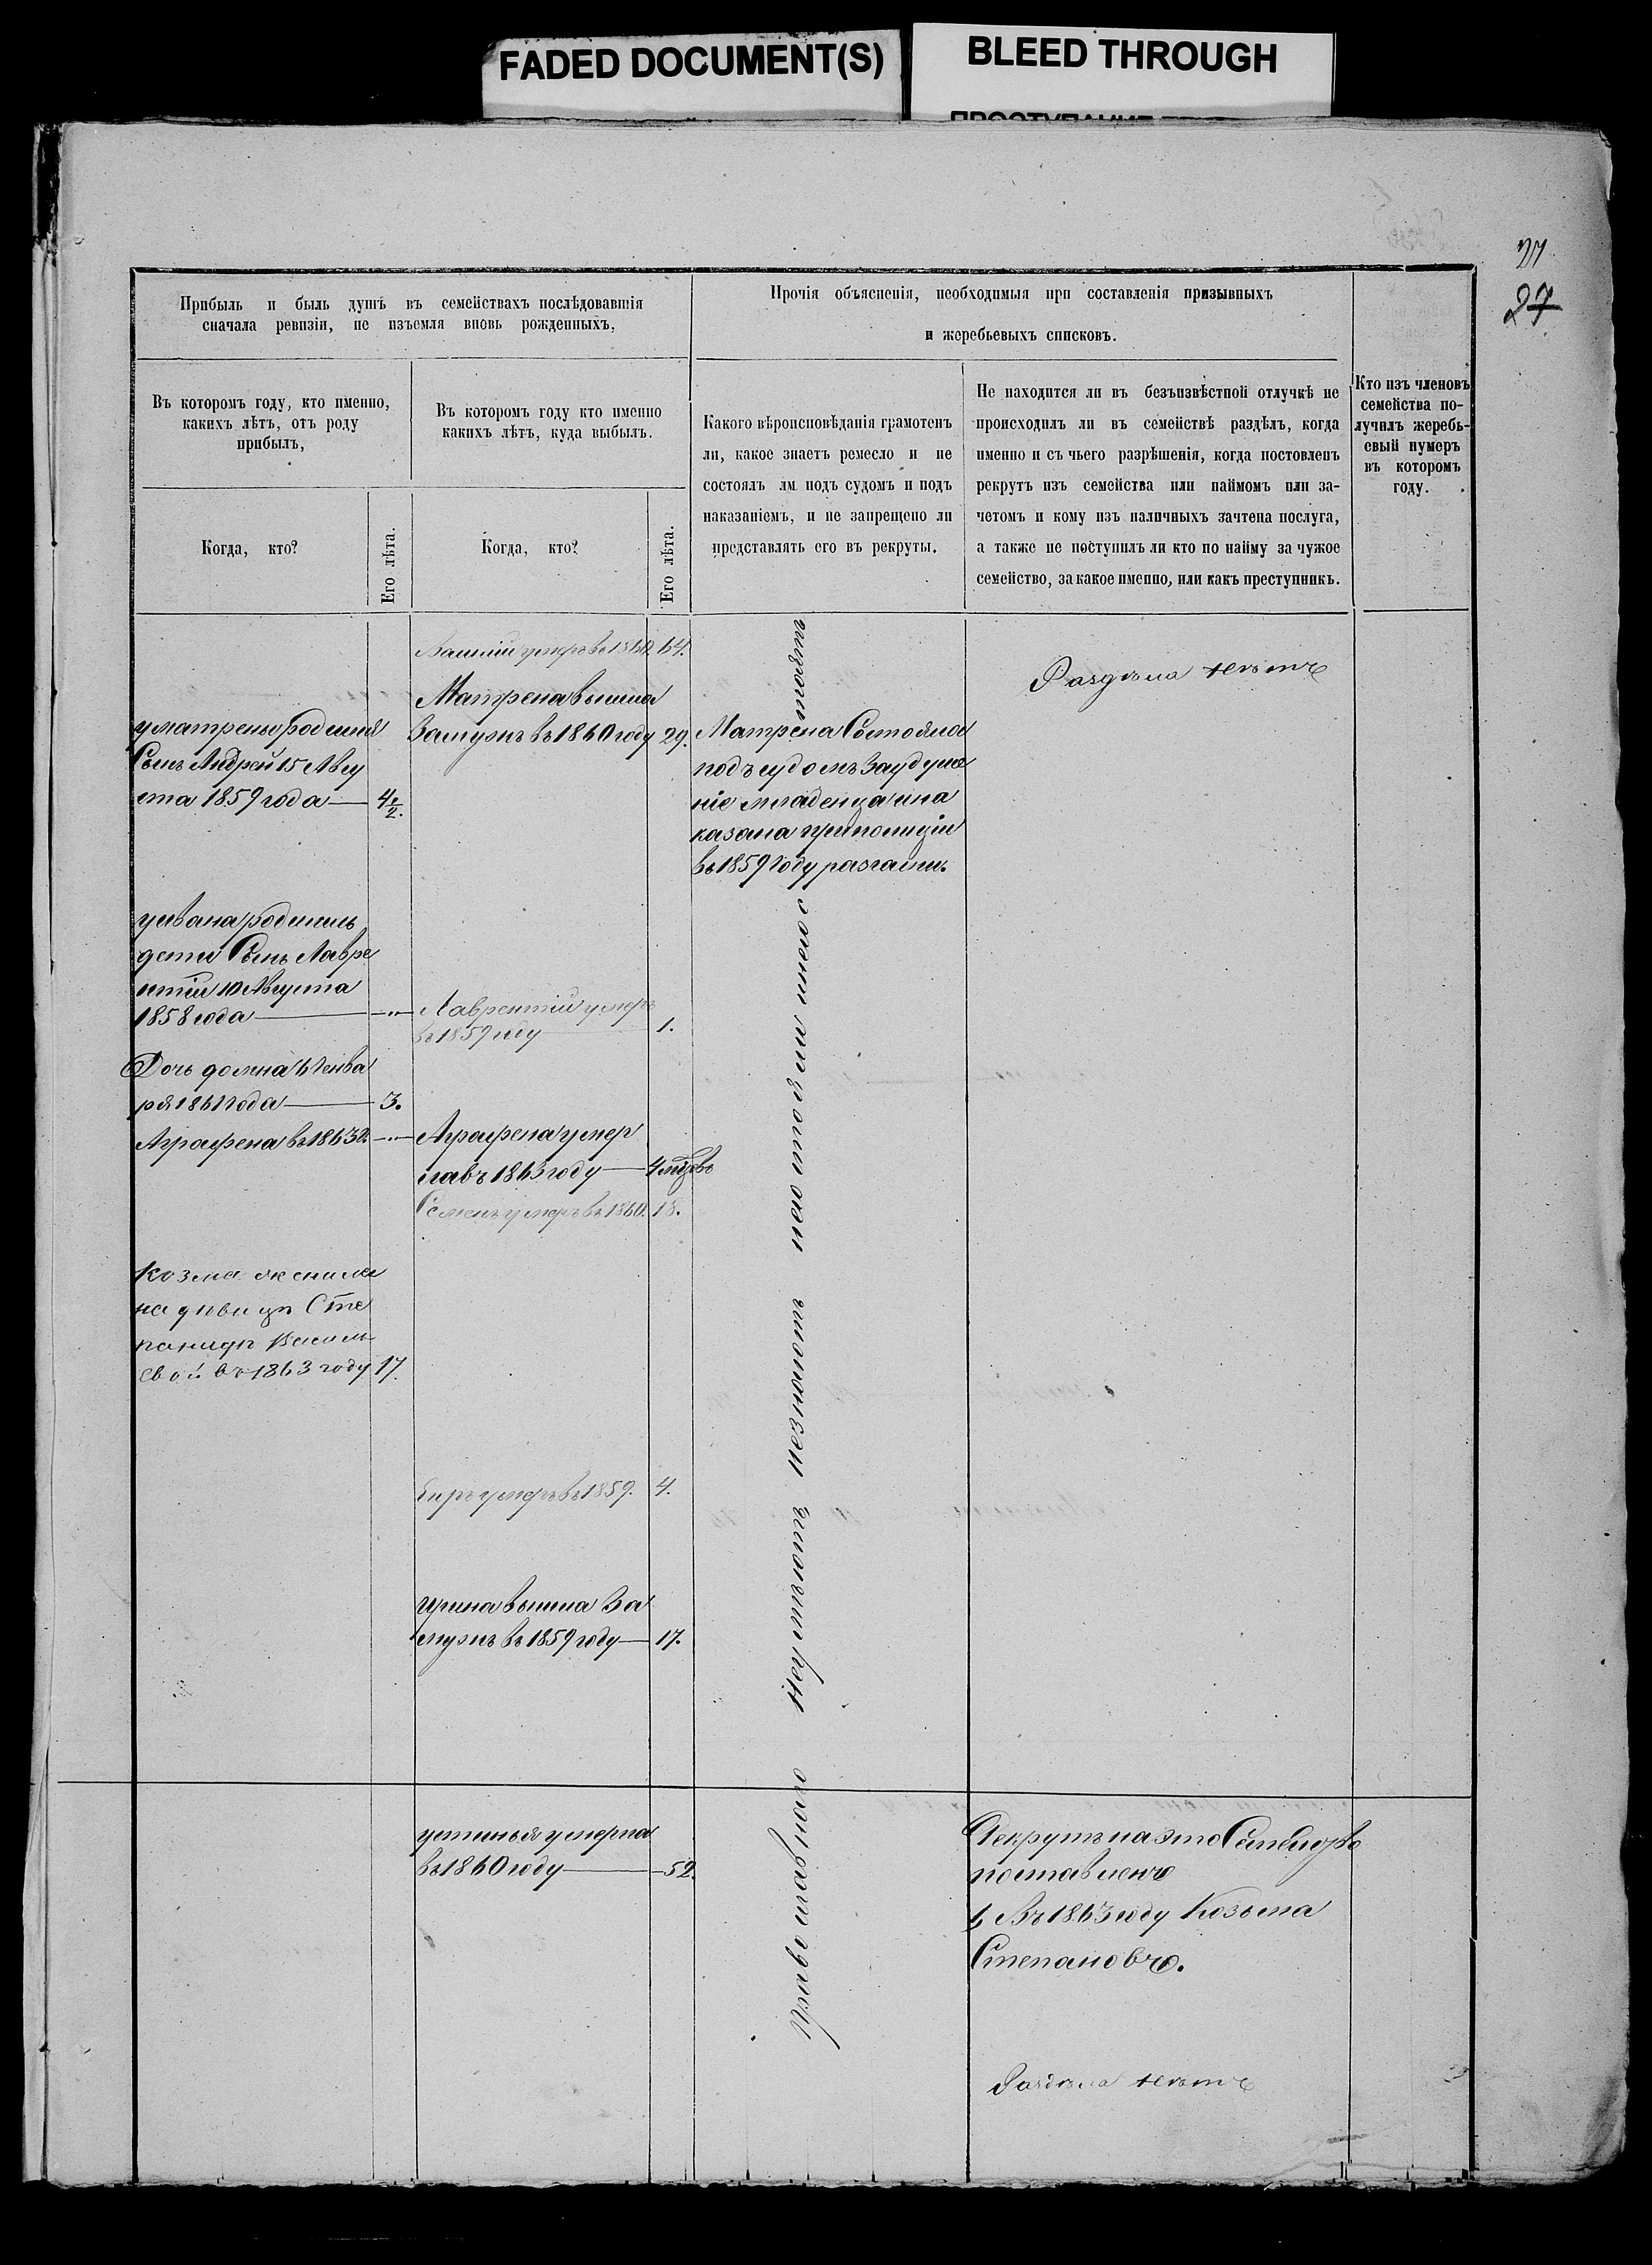 FADED DOCUMENT(S)
BLEED THROUGH
27
27
Прибыль и быль душъ въ семействахъ послѣдовавшія
сначала ревизіи, не изъемля вновь рожденныхъ,
Прочія объясненія, необходимыя при составленія призывныхъ
и жеребьевыхъ списковъ.
Въ которомъ году, кто именно,
какихъ лѣтъ, отъ роду
прибылъ,
Въ которомъ году кто именно
какихъ лѣтъ, куда выбылъ.
Когда, кто?
Его лѣта.
Когда, кто?
Его лѣта.
Какого вѣроисповѣданія грамотенъ
ли, какое знаетъ ремесло и не
состоялъ лм подъ судомъ и подъ
наказаніемъ, и не запрещено ли
представлять его въ рекруты.
Не находится ли въ безъизвѣстной отлучкѣ не
происходилъ ли въ семействѣ раздѣлъ, когда
именно и съ чьего разрѣшенія, когда постовленъ
рекрутъ изъ семейства или наймомъ или за-
четомъ и кому изъ наличныхъ зачтена послуга,
а также не поступилъ ли кто по найму за чужое
семейство, за какое именно, или какъ преступникъ.
Кто изъ членовъ
семейства по-
лучилъ жеребь-
евый нумеръ
въ которомъ
году.
умеръ въ 1860. 64.
Матрена вышла
Замужъ въ 1860 году 29.
у матрены родился
Сынъ Андрей 15 Авгу
ста 1859 года — 4 1/2.
Матрена Состояла
подъ судомъ За удуше
ніе младенца и на
казана при полиціи
въ 1859 Году розгами.
Раздѣла нѣтъ
у ивана родились
дети Сынъ Лавре
нтій 10 Августа
1858 года — „
Лаврентій умеръ
въ 1859 году 1.
Дочь домна 6 Генва
ря 1861 года — 3.
Аграфена въ 1863 г. — „
Аграфена умер
ла въ 1863 году — 4 мѣсцовъ
Семенъ умеръ въ 1860. 18.
Козма женился
на дѣвицѣ Сте
панидѣ Василь
евой въ 1863 году 17.
умеръ въ 1859. 4.
ирина вышла За
мужъ въ 1859 году — 17.
Православнаго Неумѣютъ незнаютъ несостояли инесос
тоятъ
устинья умерла
въ 1860 году — 52.
Рекрутъ на это Семейство
поставленъ
1, Въ 1863 году Козьма
Степановъ.
Раздѣла нѣтъ